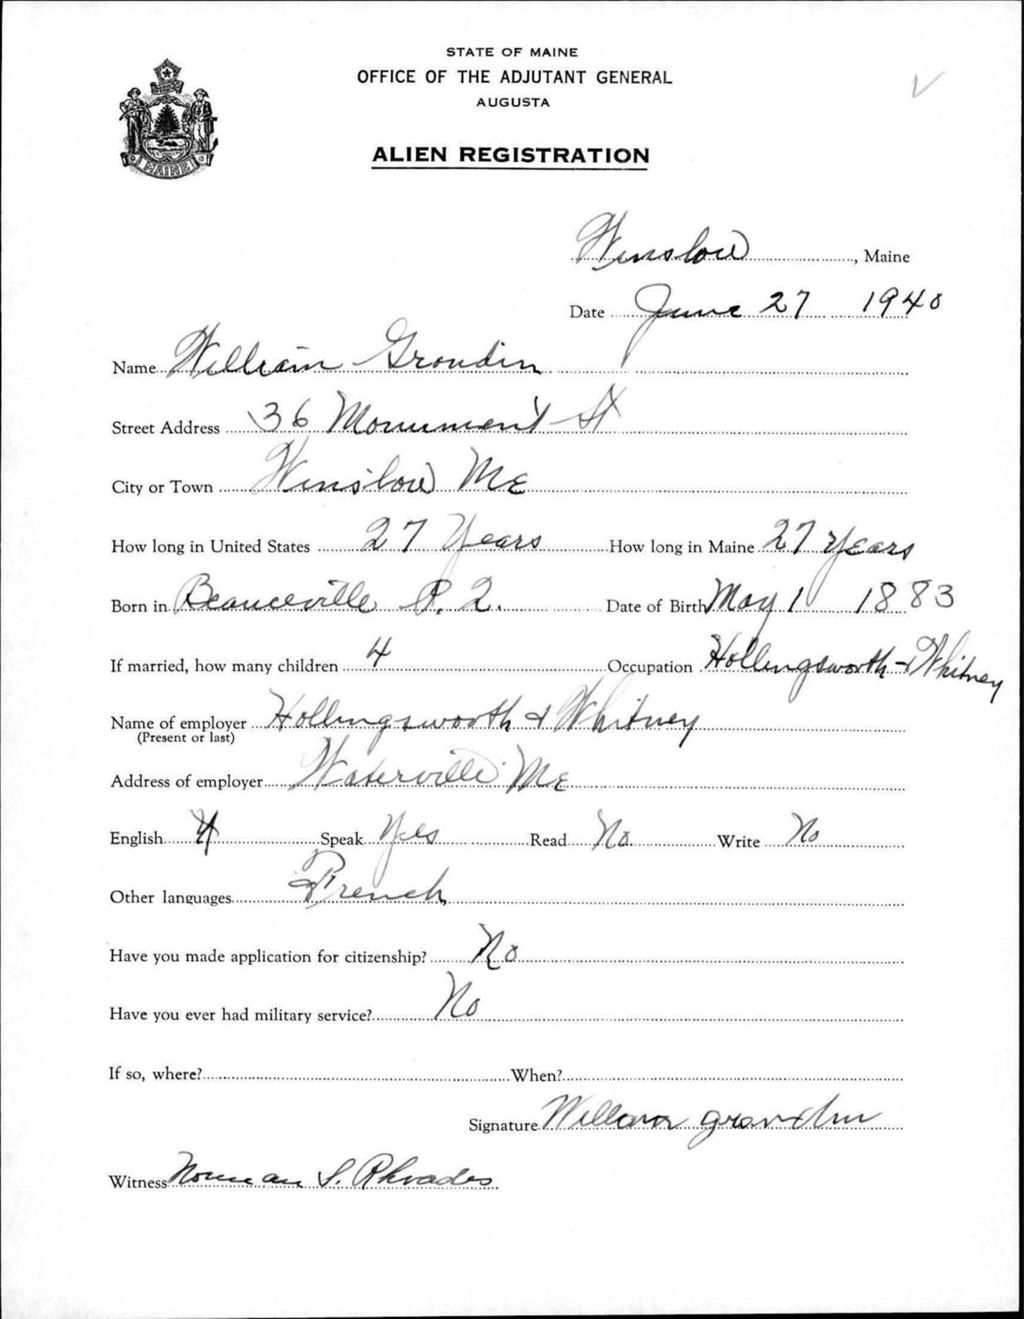 STATE OF MAINE
OFFICE OF THE ADJUTANT GENERAL
AUGUSTA
ALIEN REGISTRATION
MAINE
Winslow, Maine
Date June 27 1940
Name William Grondin
Street Address 36 Monument St
City or Town Winslow Me
How long in United States 27 Years How long in Maine 27 years
Born in Beauceville P. Q. Date of Birth May 1 1883
If married, how many children 4 Occupation Hollingsworth & Whitney
Name of employer Hollingsworth & Whitney
(Present or last)
Address of employer Waterville Me
English Speak Yes Read No. Write No
Other languages French
Have you made application for citizenship? No
Have you ever had military service? No
If so, where? When?
Signature William grondin
Witness Norman S. Rhoades